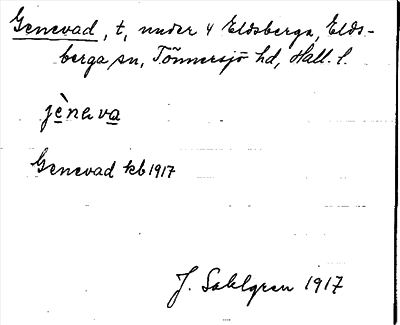 Genevad, t, under 4 Eldsberga, Elds-
berga sn, Tönnersjö hd, Hall. l.
jènava
Genevad kb 1917
J. Sahlgren 1917